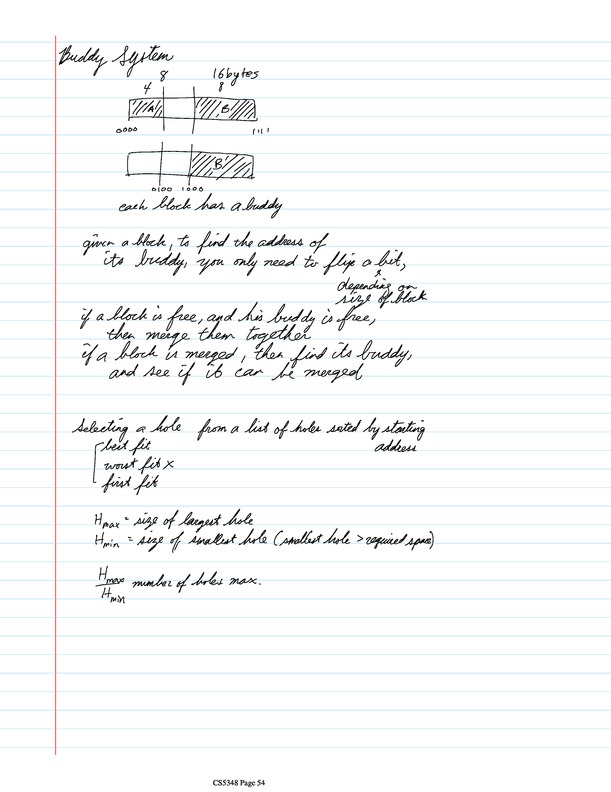 Buddy System
8 16 bytes
4 8
A B
0000 1111
B
0100 1000
each block has a buddy
given a block, to find the address of
its buddy, you only need to flip a bit,
depending on
size of block
if a block is free, and his buddy is free,
then merge them together
if a block is merged, then find its buddy,
and see if it can be merged
Selecting a hole from a list of holes sorted by starting
address
best fit
worst fit x
first fit
Hmax = size of largest hole
Hmin = size of smallest hole (smallest hole > required space)
Hmax
Hmin
number of holes max.
CS5348 Page 54